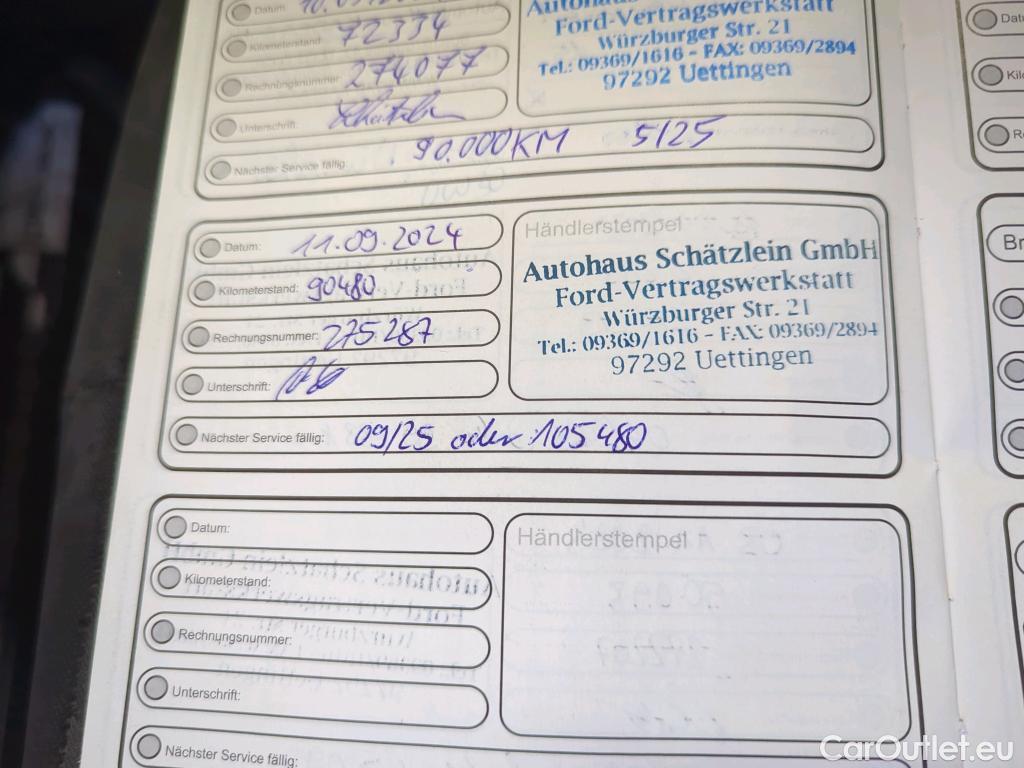 Datum:
Kilometerstand: 72334
Rechnungsnummer: 274077
Unterschrift:
Nächster Service fällig: 90.000KM 5/25
Autohaus
Ford-Vertragswerkstatt
Würzburger Str. 21
Tel.: 09369/1616 - FAX: 09369/2894
97292 Uettingen
Datum: 11.09.2024
Kilometerstand: 90480
Rechnungsnummer: 275287
Unterschrift:
Nächster Service fällig: 09/25 oder 105480
Händlerstempel
Autohaus Schätzlein GmbH
Ford-Vertragswerkstatt
Würzburger Str. 21
Tel.: 09369/1616 - FAX: 09369/2894
97292 Uettingen
Datum:
Kilometerstand:
Rechnungsnummer:
Unterschrift:
Nächster Service fällig:
Händlerstempel
CarOutlet.eu